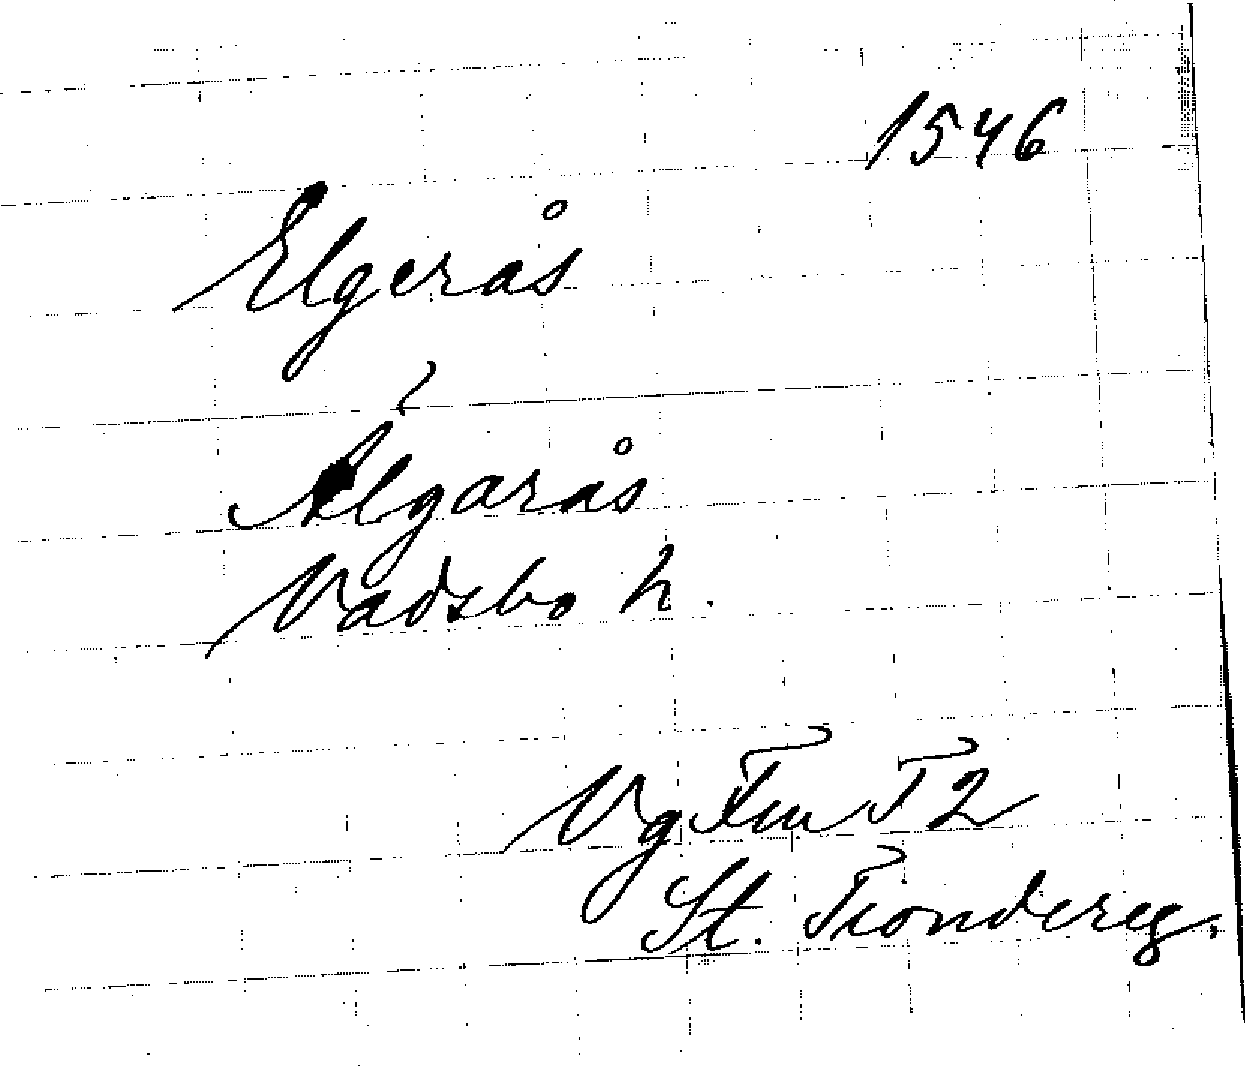 1546
Elgerås
Älgarås
Vadsbo h.
Vg Fru T 2
St. Tiondereg.